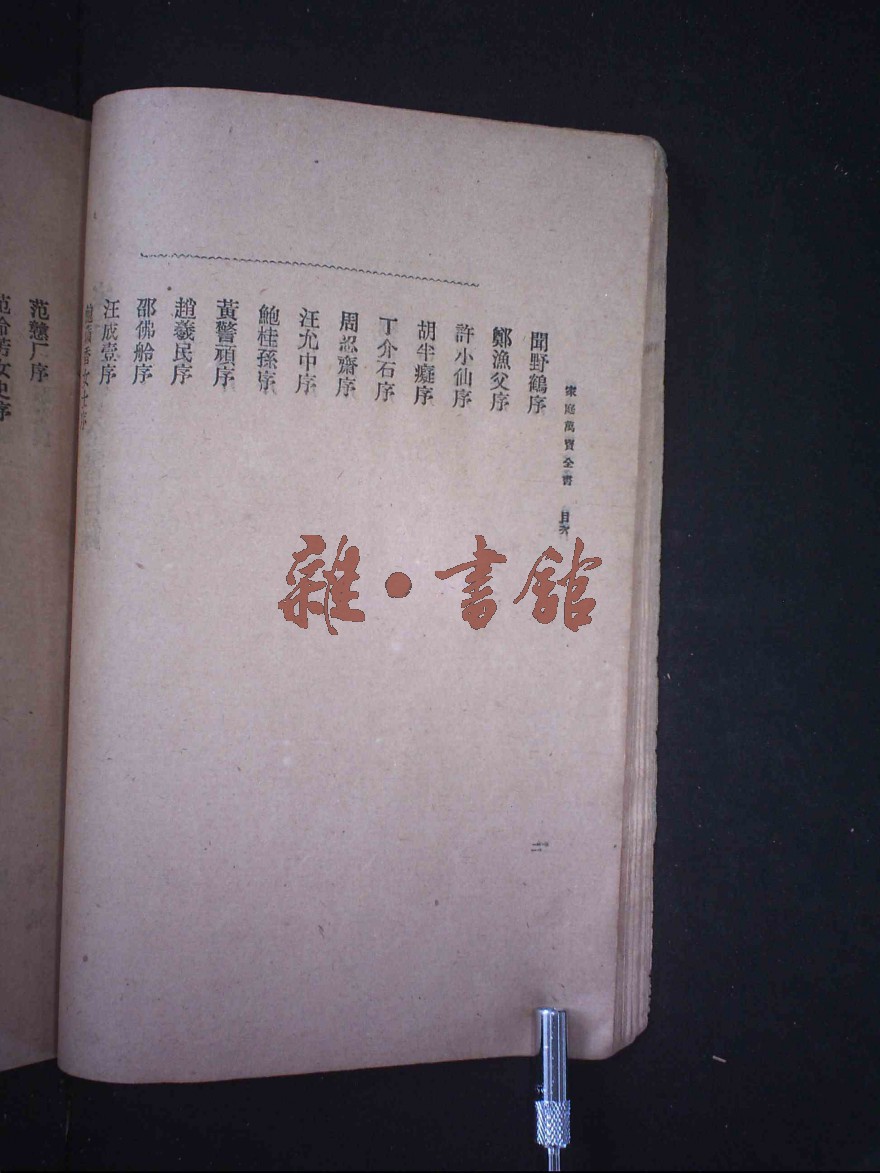 家庭萬寶全書 目次
聞野鶴序
鄭漁父序
許小仙序
胡半癡序
丁介石序
周忍齋序
汪允中序
鮑桂孫序
黃警頑序
趙羲民序
邵佛舲序
汪成壹序
香女士序
二
范慧厂序
女史序
雜·書館